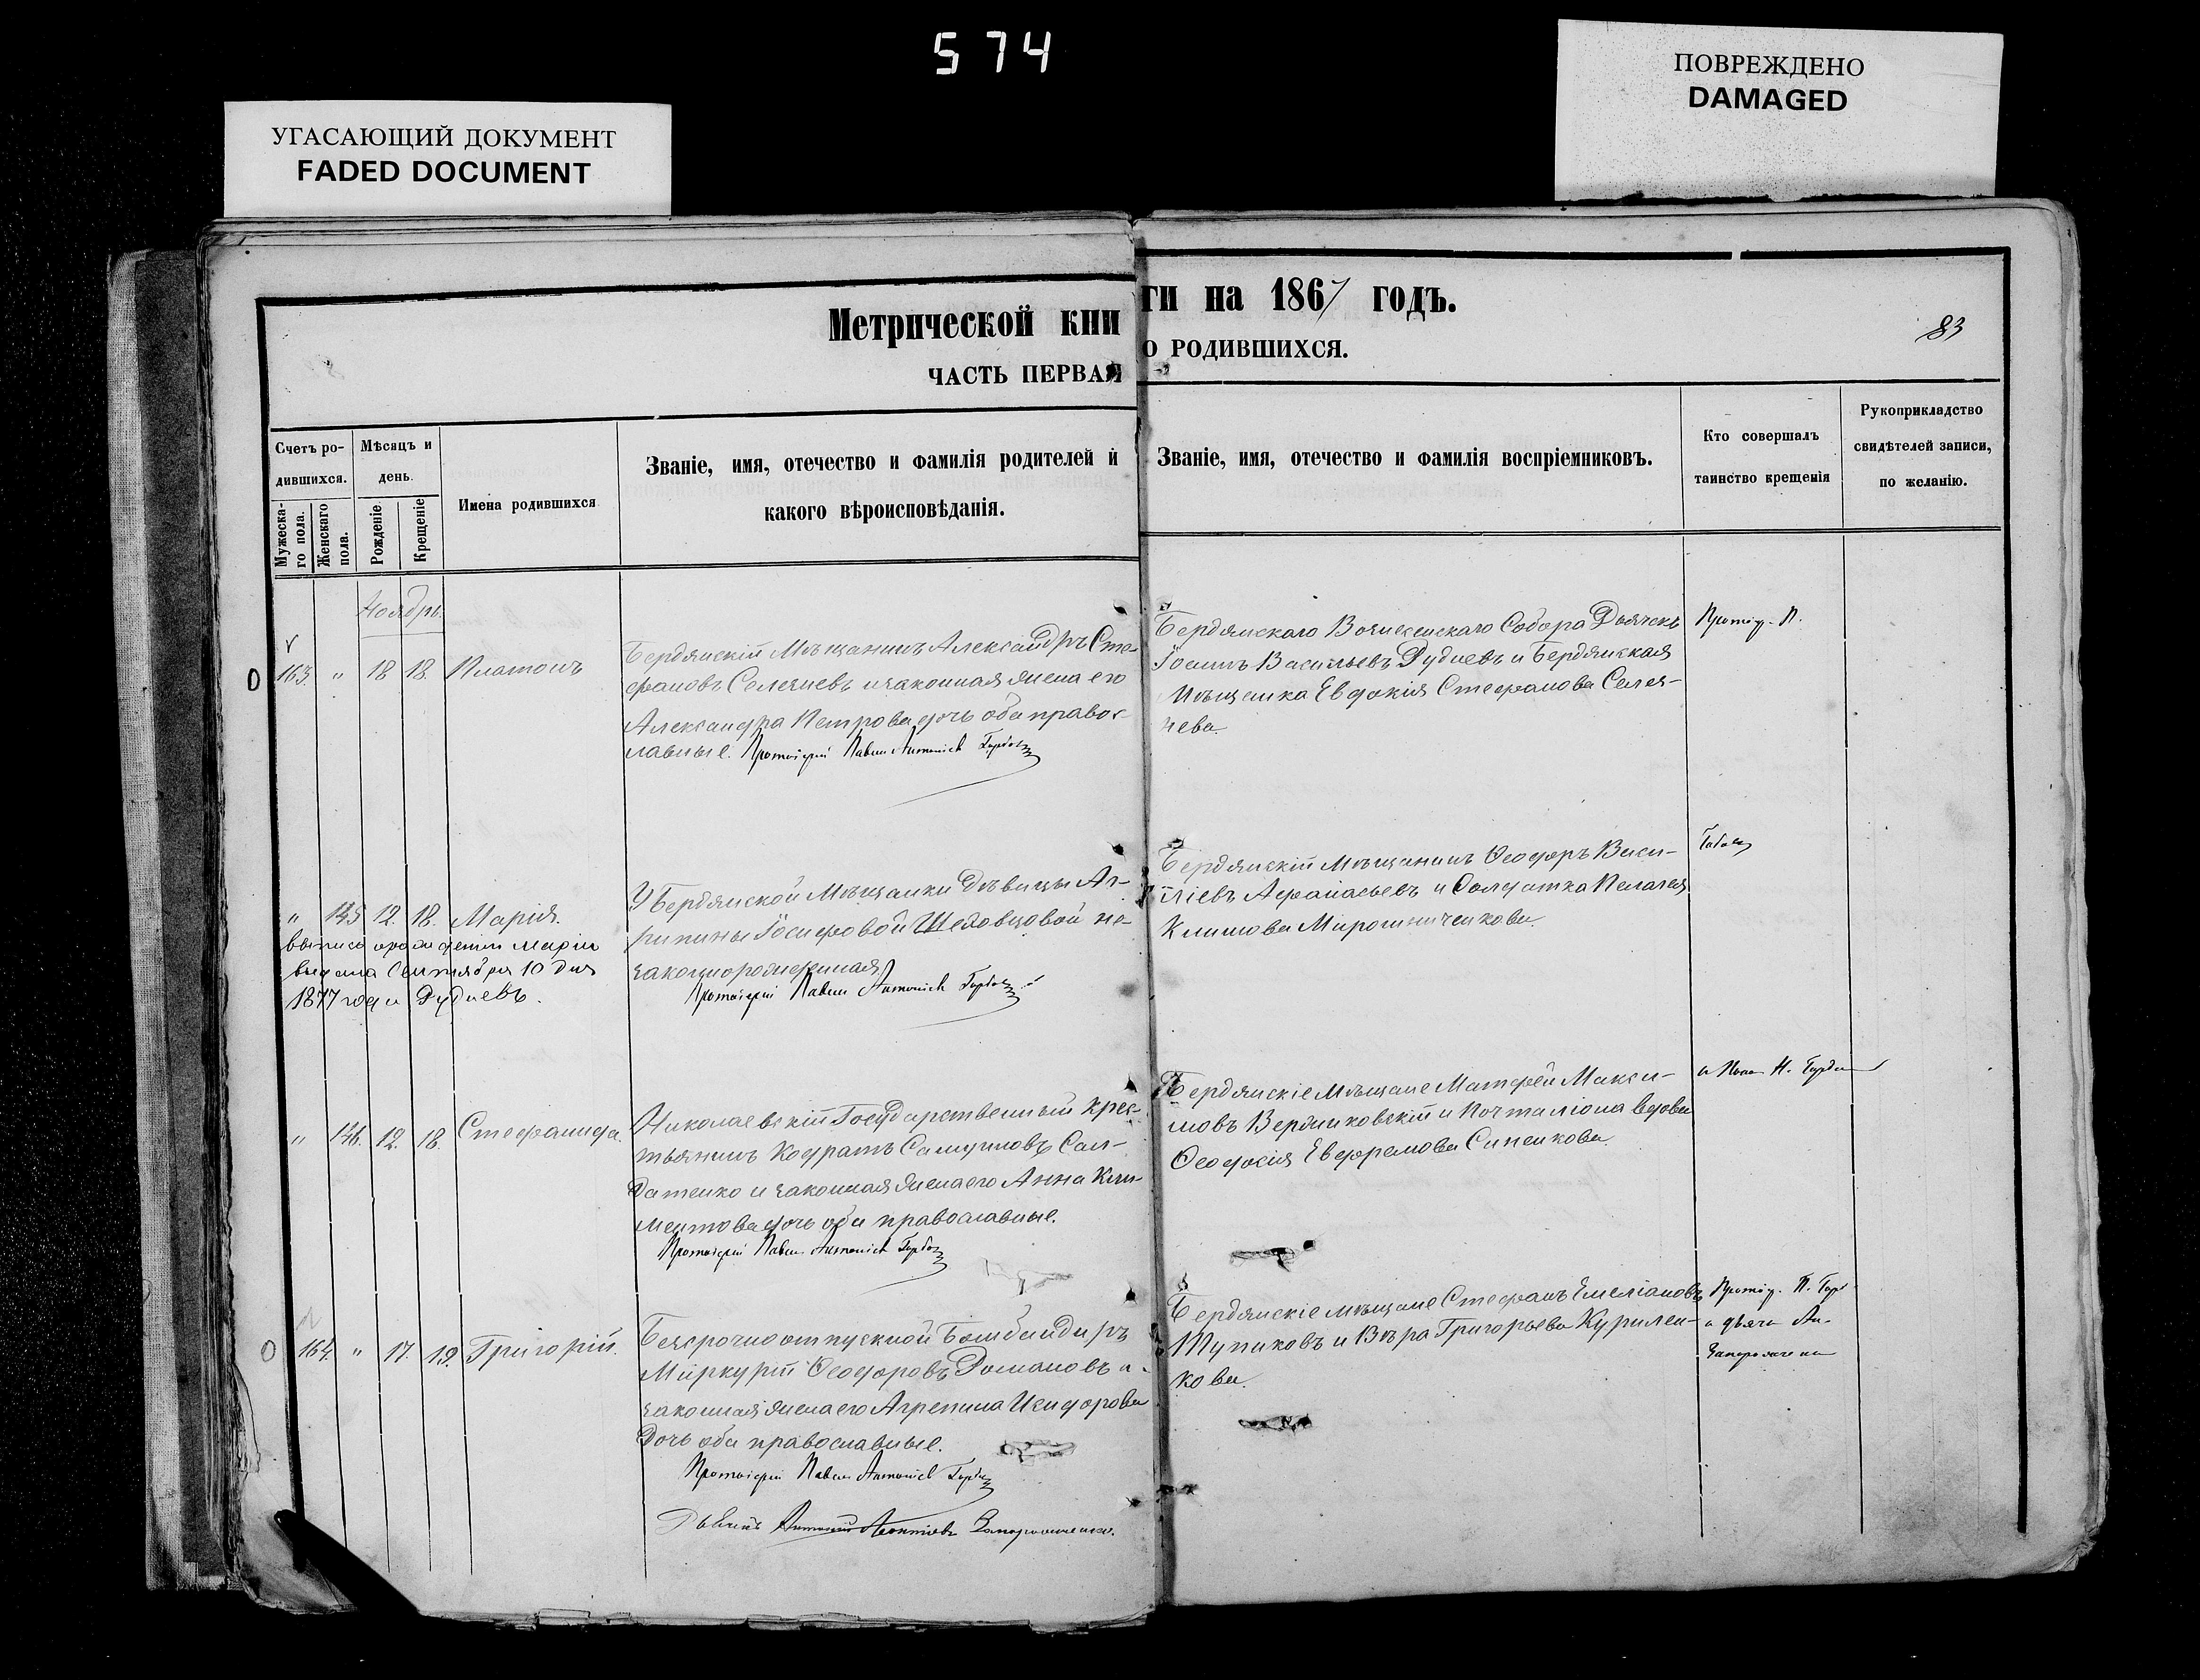 574
УГАСАЮЩИЙ ДОКУМЕНТ
FADED DOCUMENT
ПОВРЕЖДЕНО
DAMAGED
Метрической книги на 1867 годъ.
ЧАСТЬ ПЕРВАЯ О РОДИВШИХСЯ.
83
Счетъ ро-
дившихся.
Мужеска-
го пола.
Женскаго
пола.
Мѣсяцъ и
день.
Рожденіе
Крещеніе
Имена родившихся
Званіе, имя, отечество и фамилія родителей и
какого вѣроисповѣданія.
Званіе, имя, отечество и фамилія воспріемниковъ.
Кто совершалъ
таинство крещенія
Рукоприкладство
свидѣтелей записи,
по желанію.
Ноябрь.
163. " 18 18. Платонъ
Бердянскій Мѣщанинъ Александръ Сте-
фановъ Селезневъ и законная жена его
Александра Петрова дочь оба правос-
лавные. Протоіерей Павелъ Антоніев
Бердянскаго Вознесенскаго Собора Дьячекъ
Іоаннъ Васильевъ Дудневъ и Бердянская
Мѣщанка Евдокія Стефанова Селез-
нева.
Протоіер. П.
" 145 12. 18. Марія.
выпись о рождении Маріи
выдана Сентября 10 дня
1877 года Дудневъ.
У Бердянской Мѣщанки Дѣвицы Аг-
рипины Іосифовой Шеховцовой не-
законнорожденная
Протоіерей Павелъ Антоніев
Бердянскій Мѣщанинъ Ѳеодоръ Васи-
ліевъ Афанасьевъ и Солдатка Пелагея
Климова Мирошниченкова.
" 146. 12. 18. Стефанида.
Николаевскій Государственный крес-
тьянинъ Кодратъ Самуиловъ Сол-
датенко и законная жена его Анна Кли-
ментова дочь оба православные.
Протоіерей Павелъ Антоніев
Бердянскіе мѣщане Матфей Макси-
мовъ Вердиковскій и Почталіона вдова
Ѳеодосія Евфремова Синенкова.
164. " 17. 19. Григорій.
Безсрочноотпускной Бомбандиръ
Миркурій Ѳеодоровъ Романовъ и
законная жена его Агрепина Исидорова
Дочь оба православные.
Протоіерей Павелъ Антоніев
Дьячекъ Леонтіевъ Запорожченко.
Бердянскіе мѣщане Стефанъ Емеліановъ
Тупиковъ и Вѣра Григорьева Курилен-
кова.
Протоіер. П.
и дьячк Ан.